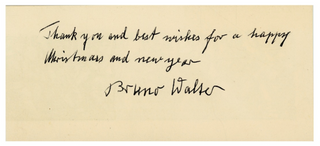 Thank you and best wishes for a happy
Christmas and new year
Bruno Walter